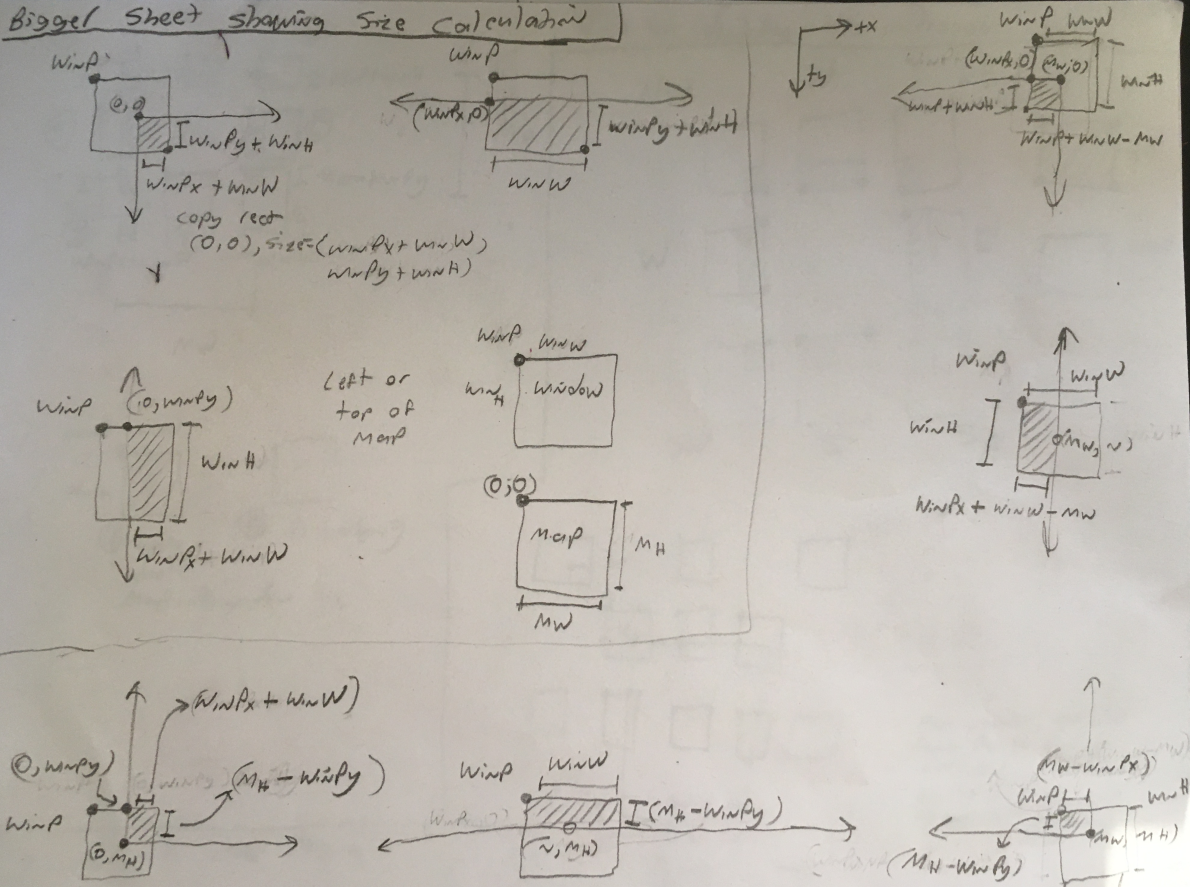 Bigger Sheet showing Size Calculation
WinP
(0,0)
WinPy + WinH
WinPx + WinW
copy rect
(0,0), size=(WinPx + WinW,
WinPy + WinH)
WinP
(WinPx,0)
WinPy + WinH
WinW
+x
+y
WinP WinW
(WinPx,0)
(MW,0)
WinH
WinP + WinH
WinP + WinW - MW
WinP (0,WinPy)
WinH
WinPx + WinW
Left or
top of
Map
WinP WinW
WinH
Window
(0,0)
Map
MH
MW
WinP
WinW
WinH
(MW,~)
WinPx + WinW - MW
(WinPx + WinW)
(0,WinPy)
(MH - WinPy)
WinP
(0,MH)
WinW
WinP
(MH - WinPy)
(~,MH)
(MW - WinPx)
WinP
WinH
(MW, MH)
(MH - WinPy)